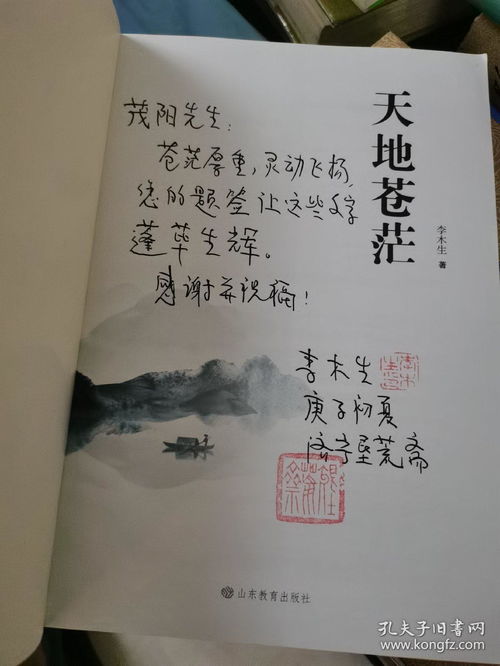 天地苍茫
李木生 著
茂阳先生：
苍茫厚重，灵动飞扬，
您的题签让这些文字
蓬荜生辉。
感谢并祝福！
李木生
庚子初夏
济宁垦荒斋
山东教育出版社
孔夫子旧书网
www.kongfz.com